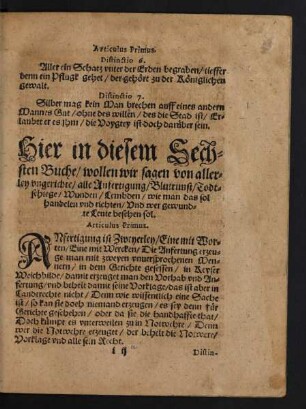 Articulus Primus.
Distinctio 6.
Aller ein Schatz vnter der Erden begraben / tieffer
denn ein Pflugk gehet / der gehört zu der Königlichen
gewalt.
Distinctio 7.
Silber mag kein Man brechen auff eines andern
Mannes Gut / ohne des willen / des die Stad ist / Er-
laubet er es Ihm / die Voygtey ist doch darüber sein.
Hier in diesem Sech-
sten Buche / wollen wir sagen von aller-
ley vngerichte / alle Anfertigung / Blutrunst / Todt-
schlege / Wunden / Lembden / wie man das sol
handelen vnd richten / Vnd wer gewund-
te Leute besehen sol.
Articulus Primus.
ANfertigung ist Zweyerley / Eine mit Wor-
ten / Eine mit Wercken / Die Anfertung erzeu-
ge man mit zweyen vnuersprochenen Men-
nern / in dem Gerichte gesessen / in Keyser
Weichbilde / damit erzeuget man den Vorhab vnd An-
fertung / vnd behelt damit seine Vorklage / das ist aber in
Landtrechte nicht / Denn wie wissentlich eine Sache
ist / so kan sie doch niemand erzeugen / es sey denn für
Gerichte geschehen / oder da sie die handhaffte that /
Doch kümpt es vnterweilen zu in Notwehre / Denn
wer die Notwehre erzeuget / der behelt die Notwere /
Vorklagt vnd alle sein Recht.
Distin-